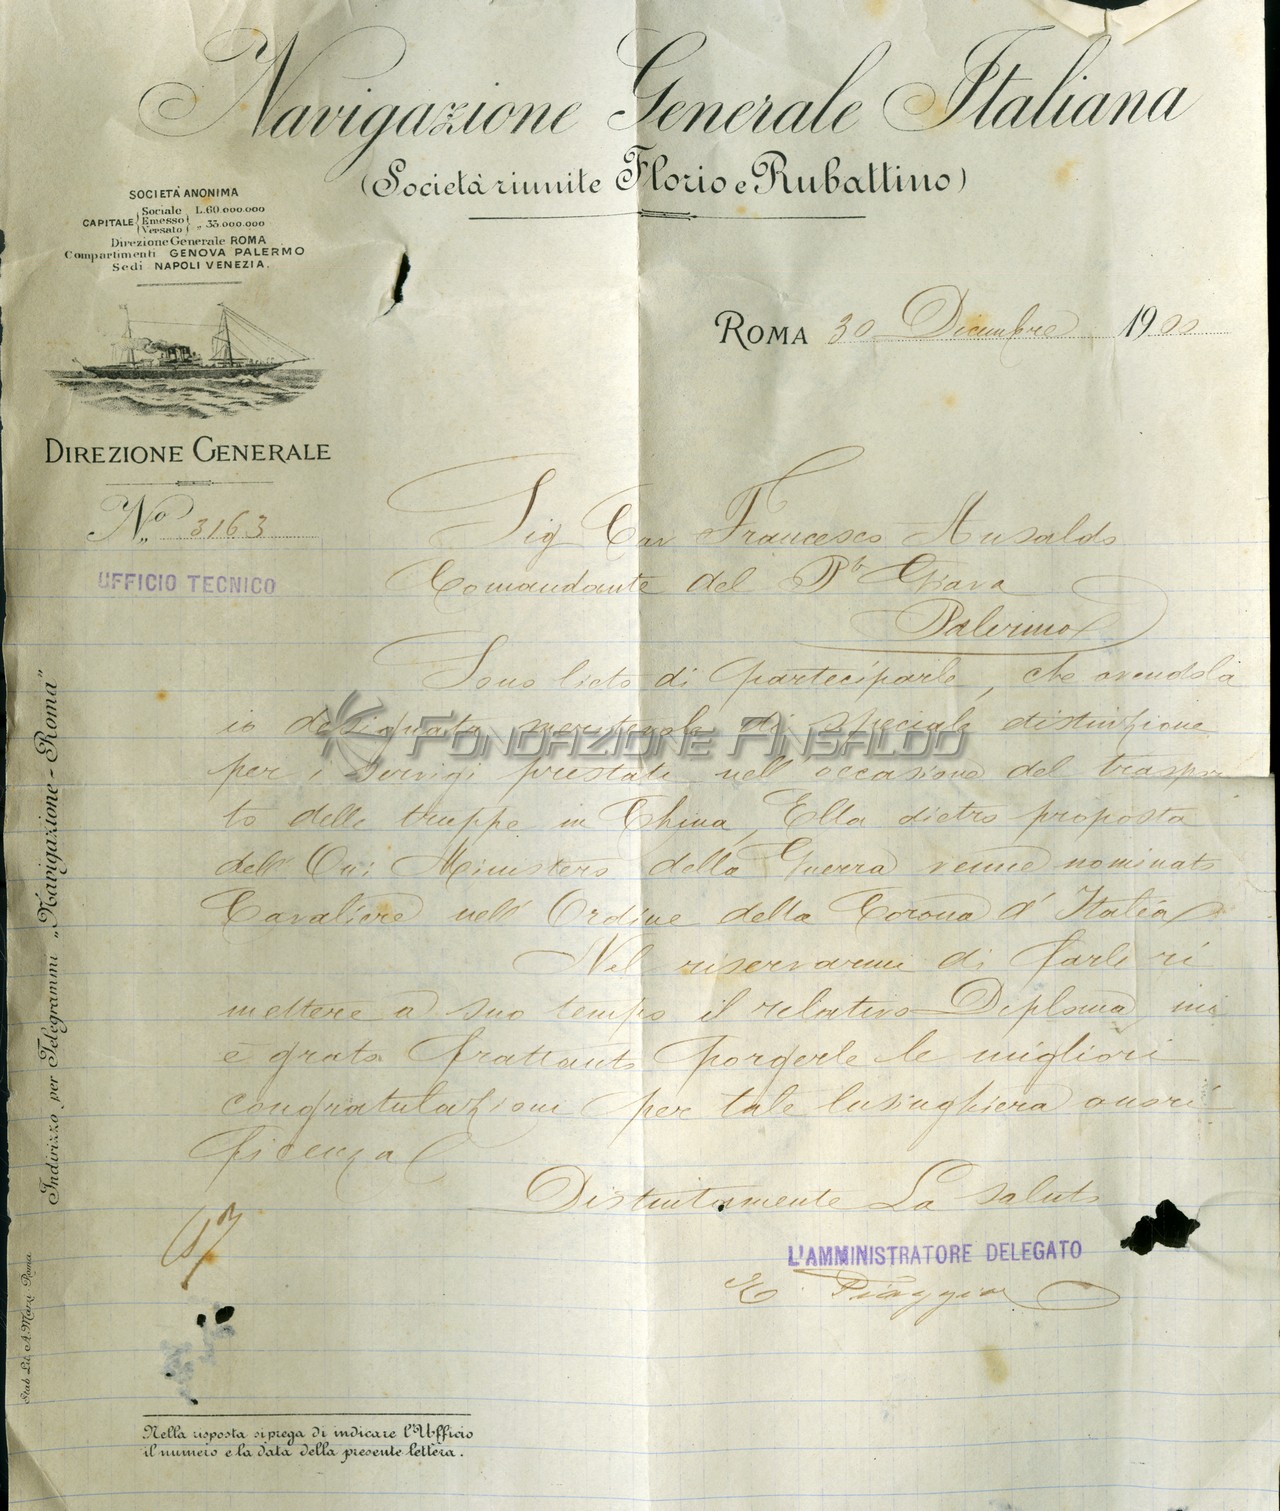 Navigazione Generale Italiana
(Società riunite Florio e Rubattino)
SOCIETÀ ANONIMA
CAPITALE { Sociale L. 60.000.000
Emesso
Versato } „ 33.000.000
Direzione Generale ROMA
Compartimenti GENOVA PALERMO
Sedi NAPOLI VENEZIA.
ROMA 30 Dicembre 1900
DIREZIONE GENERALE
N.º 3163
UFFICIO TECNICO
Sig Cav Francesco Ansaldo
Comandante del Pfo Giava
Palermo
Sono lieto di parteciparle, che avendola
io designata meritevole di speciale distinzione
per i servigi prestati nell'occasione del traspor
to delle truppe in China, Ella dietro proposta
dell'On: Ministero della Guerra venne nominato
Cavaliere nell'Ordine della Corona d'Italia
Nel riservarmi di farle ri
mettere a suo tempo il relativo Diploma, mi
è grato frattanto porgerle le migliori
congratulazioni per tale lusinghiera onori
ficenza
Distintamente La saluto
L'AMMINISTRATORE DELEGATO
E. Piaggio
FONDAZIONE ANSALDO
Indirizzo per Telegrammi „Navigazione - Roma"
Stab. Lit. A. Marzi Roma
Nella risposta si prega di indicare l'Ufficio
il numero e la data della presente lettera.